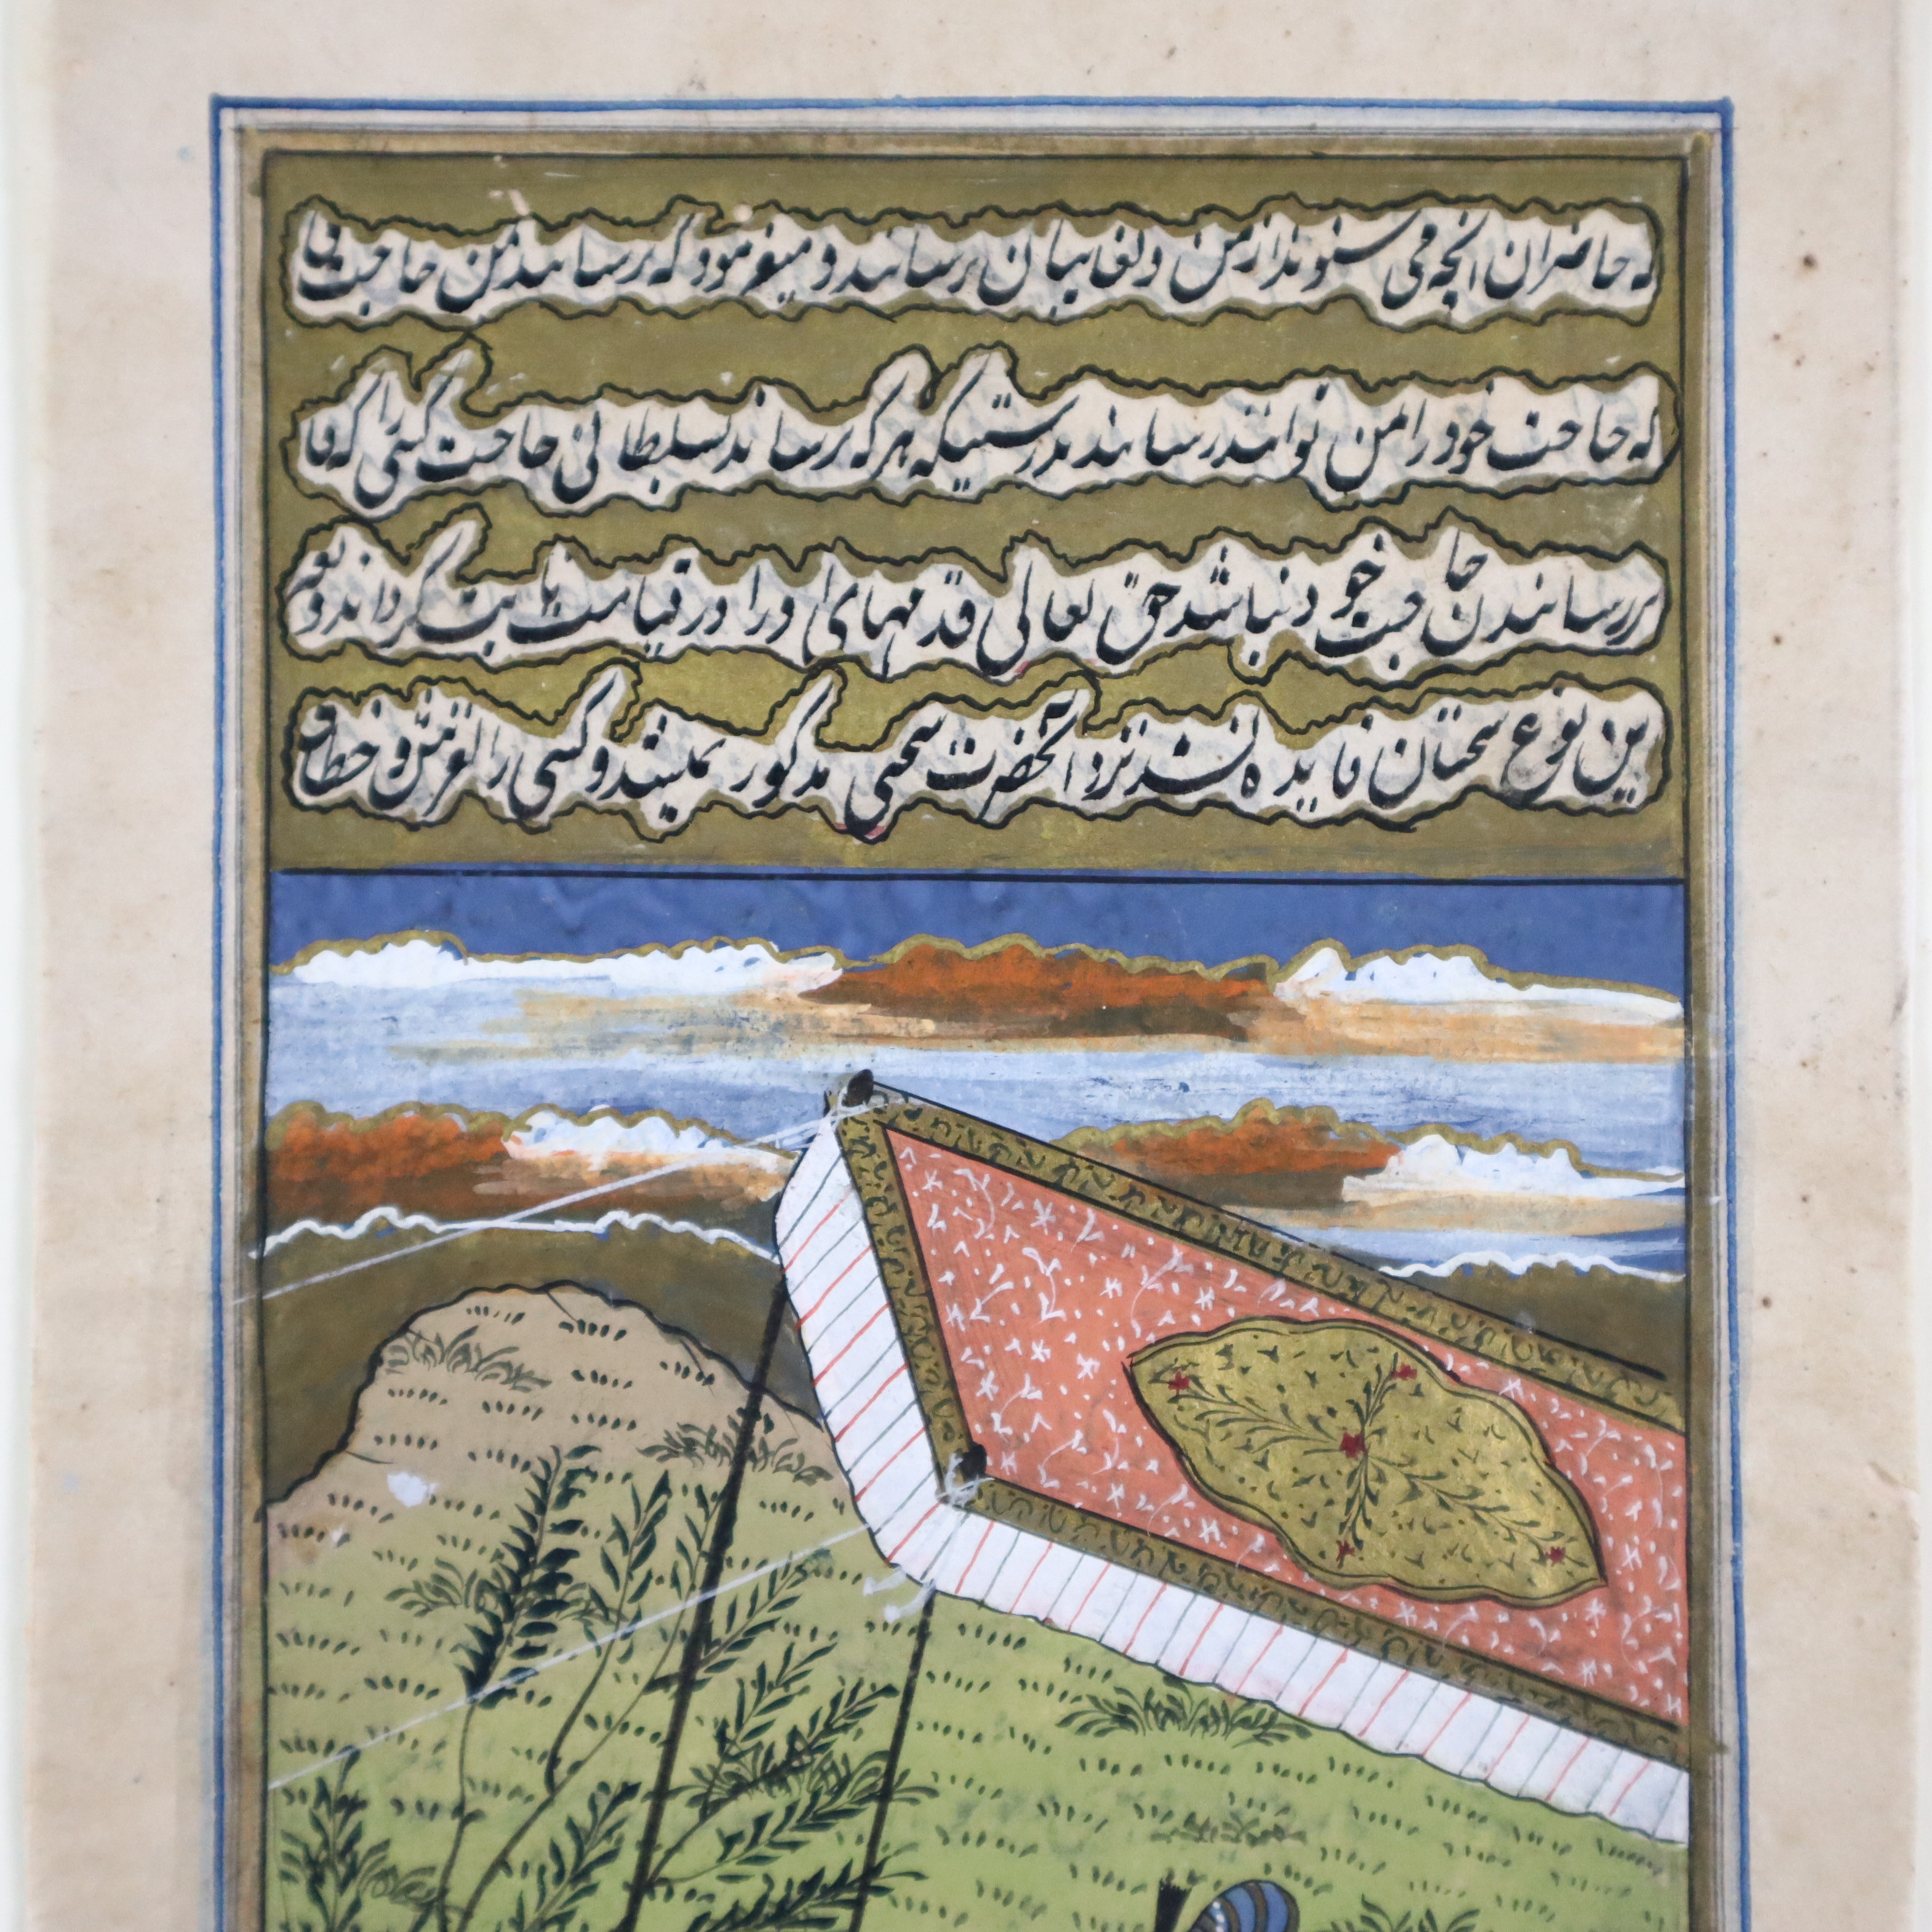 که حاضران آنچه می شنوند از من و بغایبان برسانند و میفرمود که برسانند بمن حاجت
که حاجت خود را بمن نتوانند رسانند بدرستیکه هر که برساند بسلطانی حاجت کسی را که قا
بر رسانیدن حاجت خود نباشد حق تعالی قدمهای او را در قیامت ثابت گرداند و بغیر
این نوع سخنان فایده مند نزد آنحضرت سخنی مذکور نمیشد و کسی را لغزش و خطا